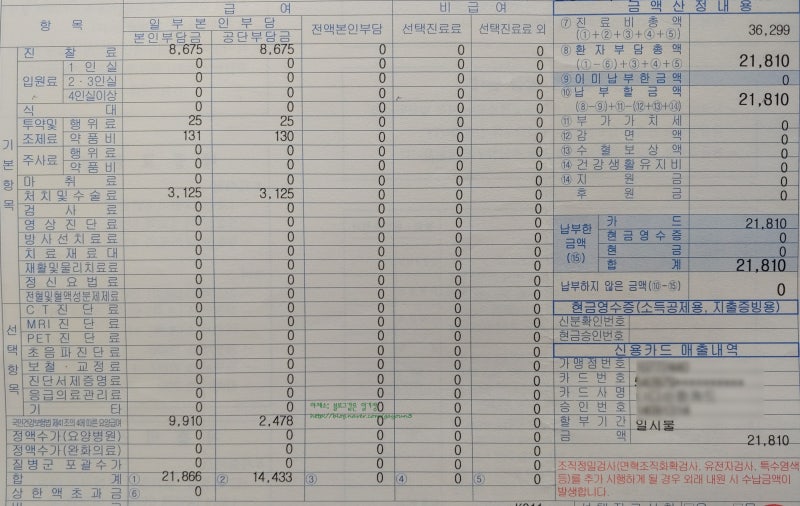 급 여 비 급 여 금 액 산 정 내 용
항 목 일 부 본 인 부 담 전액본인부담 선택진료료 선택진료료 외
본인부담금 공단부담금
진 찰 료 8,675 8,675 0 0 0
입원료 1 인 실 0 0 0 0 0
2·3인실 0 0 0 0 0
4인실이상 0 0 0 0 0
식 대 0 0 0 0 0
투약및 행 위 료 25 25 0 0 0
조제료 약 품 비 131 130 0 0 0
주사료 행 위 료 0 0 0 0 0
약 품 비 0 0 0 0 0
마 취 료 0 0 0 0 0
처 치 및 수 술 료 3,125 3,125 0 0 0
검 사 료 0 0 0 0 0
영 상 진 단 료 0 0 0 0 0
방 사 선 치 료 료 0 0 0 0 0
치 료 재 료 대 0 0 0 0 0
재활및물리치료료 0 0 0 0 0
정 신 요 법 료 0 0 0 0 0
전혈및혈액성분제제료 0 0 0 0 0
기 본 항 목
C T 진 단 료 0 0 0 0 0
MRI 진 단 료 0 0 0 0 0
PET 진 단 료 0 0 0 0 0
초 음 파 진 단 료 0 0 0 0 0
보 철 · 교 정 료 0 0 0 0 0
진단서제증명료 0 0 0 0 0
응급의료관리료 0 0 0 0 0
기 타 0 0 0 0 0
선 택 항 목
9,910 2,478 0 0 0
정액수가(요양병원) 0 0 0 0 0
정액수가(완화의료) 0 0 0 0 0
질 병 군 포 괄 수 가 0 0 0 0 0
합 계 ① 21,866 ② 14,433 ③ 0 ④ 0 ⑤ 0
상 한 액 초 과 금 ⑥ 0
⑦ 진 료 비 총 액 36,299
(①+②+③+④+⑤)
⑧ 환 자 부 담 총 액 21,810
(①-⑥)+③+④+⑤
⑨ 이 미 납 부 한 금 액 0
⑩ 납 부 할 금 액 21,810
(⑧-⑨)+⑪-(⑫+⑬+⑭)
⑪ 부 가 가 치 세 0
⑫ 감 면 액 0
⑬ 수 혈 보 상 액 0
⑭ 건 강 생 활 유 지 비 0
⑭ 지 원 금 0
후 원 금 0
납부한 금액 (⑮) 카 드 21,810
현 금 영 수 증 0
현 금 0
합 계 21,810
납부하지 않은 금액(⑩-⑮) 0
현금영수증(소득공제용, 지출증빙용)
신분확인번호
현금승인번호
신용카드 매출내역
가 맹 점 번 호
카 드 번 호
카 드 사 명
승 인 번 호
할 부 기 간 일시불
금 액 21,810
조직정밀검사(면역조직화학검사, 유전자검사, 특수염색
등)를 추가 시행하게 될 경우 외래 내원 시 수납금액이
발생합니다.